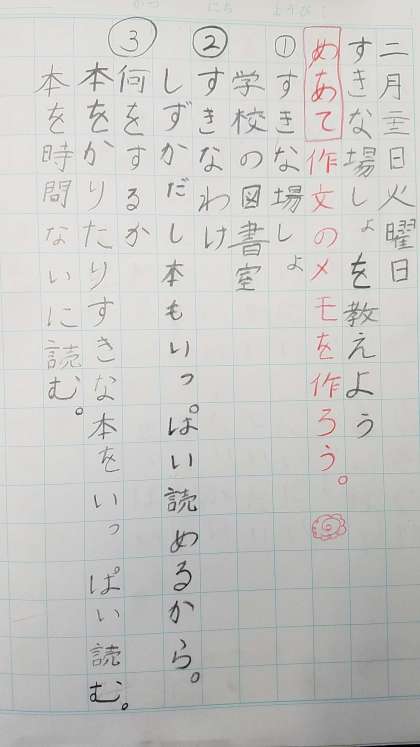 がつ にち ようび
二月日火曜日
すきな場しょを教えよう
めあて作文のメモを作ろう。
①すきな場しょ
学校の図書室
②すきなわけ
しずかだし本もいっぱい読めるから。
③何をするか
本をかりたりすきな本をいっぱい読む。
本を時間ないに読む。